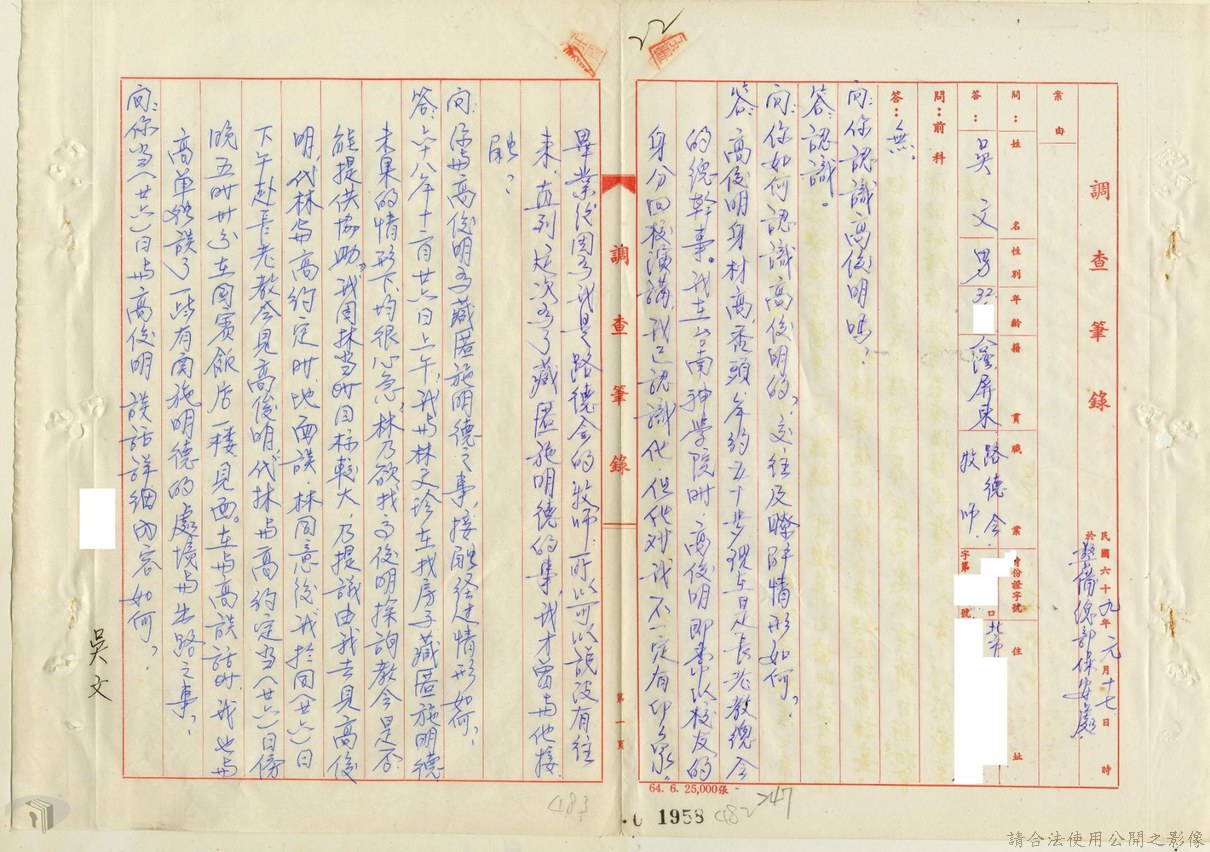 22
調查筆錄
民國六十九年元月十七日 時
於警備總部保安處
案由
問：姓名 性別 年齡 籍貫 職業 身份證字號 住址
答：吳文 男 32 屏東 路德會牧師 字第 號 北市
問：前科
答：無。
問：你認識高俊明嗎？
答：認識。
問：你如何認識高俊明的，交往及瞭解情形如何？
答：高俊明身材高，禿頭，年約五十歲，現在是長老教總會
的總幹事。我在台南神學院時，高俊明即常以校友的
身分回校演講，我已認識他，但他對我不一定有印象。
64. 6. 25,000張
1958
482
247
調查筆錄
第一頁
畢業後因為我是路德會的牧師，所以可以說沒有往
來，直到這次為了藏匿施明德的事，我才曾與他接
觸？
問：你與高俊明為藏匿施明德之事，接觸經過情形如何？
答：六十八年十二月廿六日上午，我與林文珍在找房子藏匿施明德
未果的情形下，均很心急，林乃欲找高俊明探詢教會是否
能提供協助，我因林當時目標較大，乃提議由我去見高俊
明，代林與高約定時、地面談，林同意後，我於同（廿六）日
下午赴長老教會見高俊明代林與高約定當（廿六）日傍
晚五時卅分在國賓飯店一樓見面。在與高談話時，我也與
高單獨談了一些有關施明德的處境與出路之事，
問：你當（廿六）日與高俊明談話詳細內容如何？
吳文
483
請合法使用公開之影像